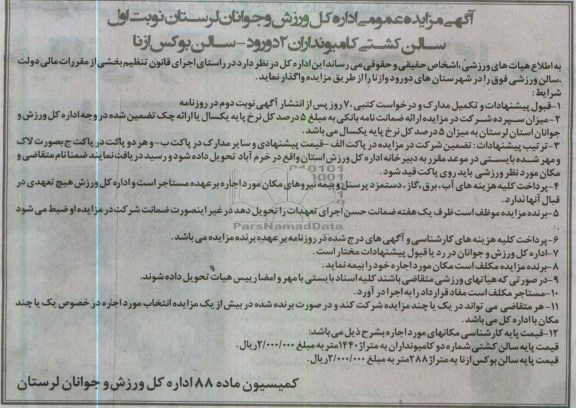 آگهی مزایده عمومی اداره کل ورزش و جوانان لرستان نوبت اول
سالن کشتی کامیونداران ۲ دورود - سالن بوکس ازنا
به اطلاع هیات های ورزشی، اشخاص حقیقی و حقوقی می رساند این اداره کل در نظر دارد در راستای اجرای قانون تنظیم بخشی از مقررات مالی دولت
،سالن ورزشی فوق را در شهرستان های دورود و ازنا را از طریق مزایده واگذار نماید.
شرایط:
۱-قبول پیشنهادات و تکمیل مدارک و درخواست کتبی، ۷۰ روز پس از انتشار آگهی نوبت دوم در روزنامه
۲-میزان سپرده شرکت در مزایده ارائه ضمانت نامه بانکی به مبلغ ۵ درصد کل نرخ پایه یکسال یا ارائه چک تضمین شده در وجه اداره کل ورزش و
جوانان استان لرستان به میزان ۵ درصد کل نرخ پایه یکسال می باشد.
۳-ترتیب پیشنهادات: تضمین شرکت در مزایده در پاکت الف - قیمت پیشنهادی و سایر مدارک در پاکت ب - و هر دو پاکت در پاکت ج بصورت لاک
و مهر شده بایستی در موعد مقرر به دبیرخانه اداره کل ورزش استان واقع در خرم آباد تحویل داده شود و رسید دریافت نمایند ضمنا نام متقاضی و
مکان مورد نظر ورزشی باید روی پاکت قید شود.
۴-پرداخت کلیه هزینه های آب، برق، گاز، دستمزد پرسنل و بیمه نیروهای مکان مورد اجاره بر عهده مستاجر است و اداره کل ورزش هیچ تعهدی در
قبال آنها ندارد.
۵-برنده مزایده موظف است ظرف یک هفته ضمانت حسن اجرای تعهدات را تحویل دهد در غیر اینصورت ضمانت شرکت در مزایده او ضبط می شود
.
۶-پرداخت کلیه هزینه های کارشناسی و آگهی های درج شده در روزنامه بر عهده برنده مزایده می باشد.
۷-اداره کل ورزش و جوانان در رد یا قبول پیشنهادات مختار است.
۸-برنده مزایده مکلف است مکان مورد اجاره خود را بیمه نماید.
۹-در صورتی که هیاتهای ورزشی متقاضی باشند کلیه اسناد بایستی با مهر و امضا رییس هیات تحویل داده شوند.
۱۰-مستاجر مکلف است مفاد قرارداد را به اجرا در آورد.
۱۱- هر متقاضی می تواند در یک یا چند مزایده شرکت کند و در صورت برنده شده در بیش از یک مزایده انتخاب مورد اجاره در خصوص یک یا چند
مکان با اداره کل می باشد.
۱۲-قیمت پایه کارشناسی مکانهای مورد اجاره بشرح ذیل می باشد:
قیمت پایه سالن کشتی شماره دو کامیونداران به متراژ ۱۴۴۰ متر به مبلغ ۲/۰۰۰/۰۰۰ ریال.
قیمت پایه سالن بوکس ازنا به متراژ ۲۸۸ متر به مبلغ ۲/۰۰۰/۰۰۰ ریال.
کمیسیون ماده ۸۸ اداره کل ورزش و جوانان لرستان
ParsNamadData